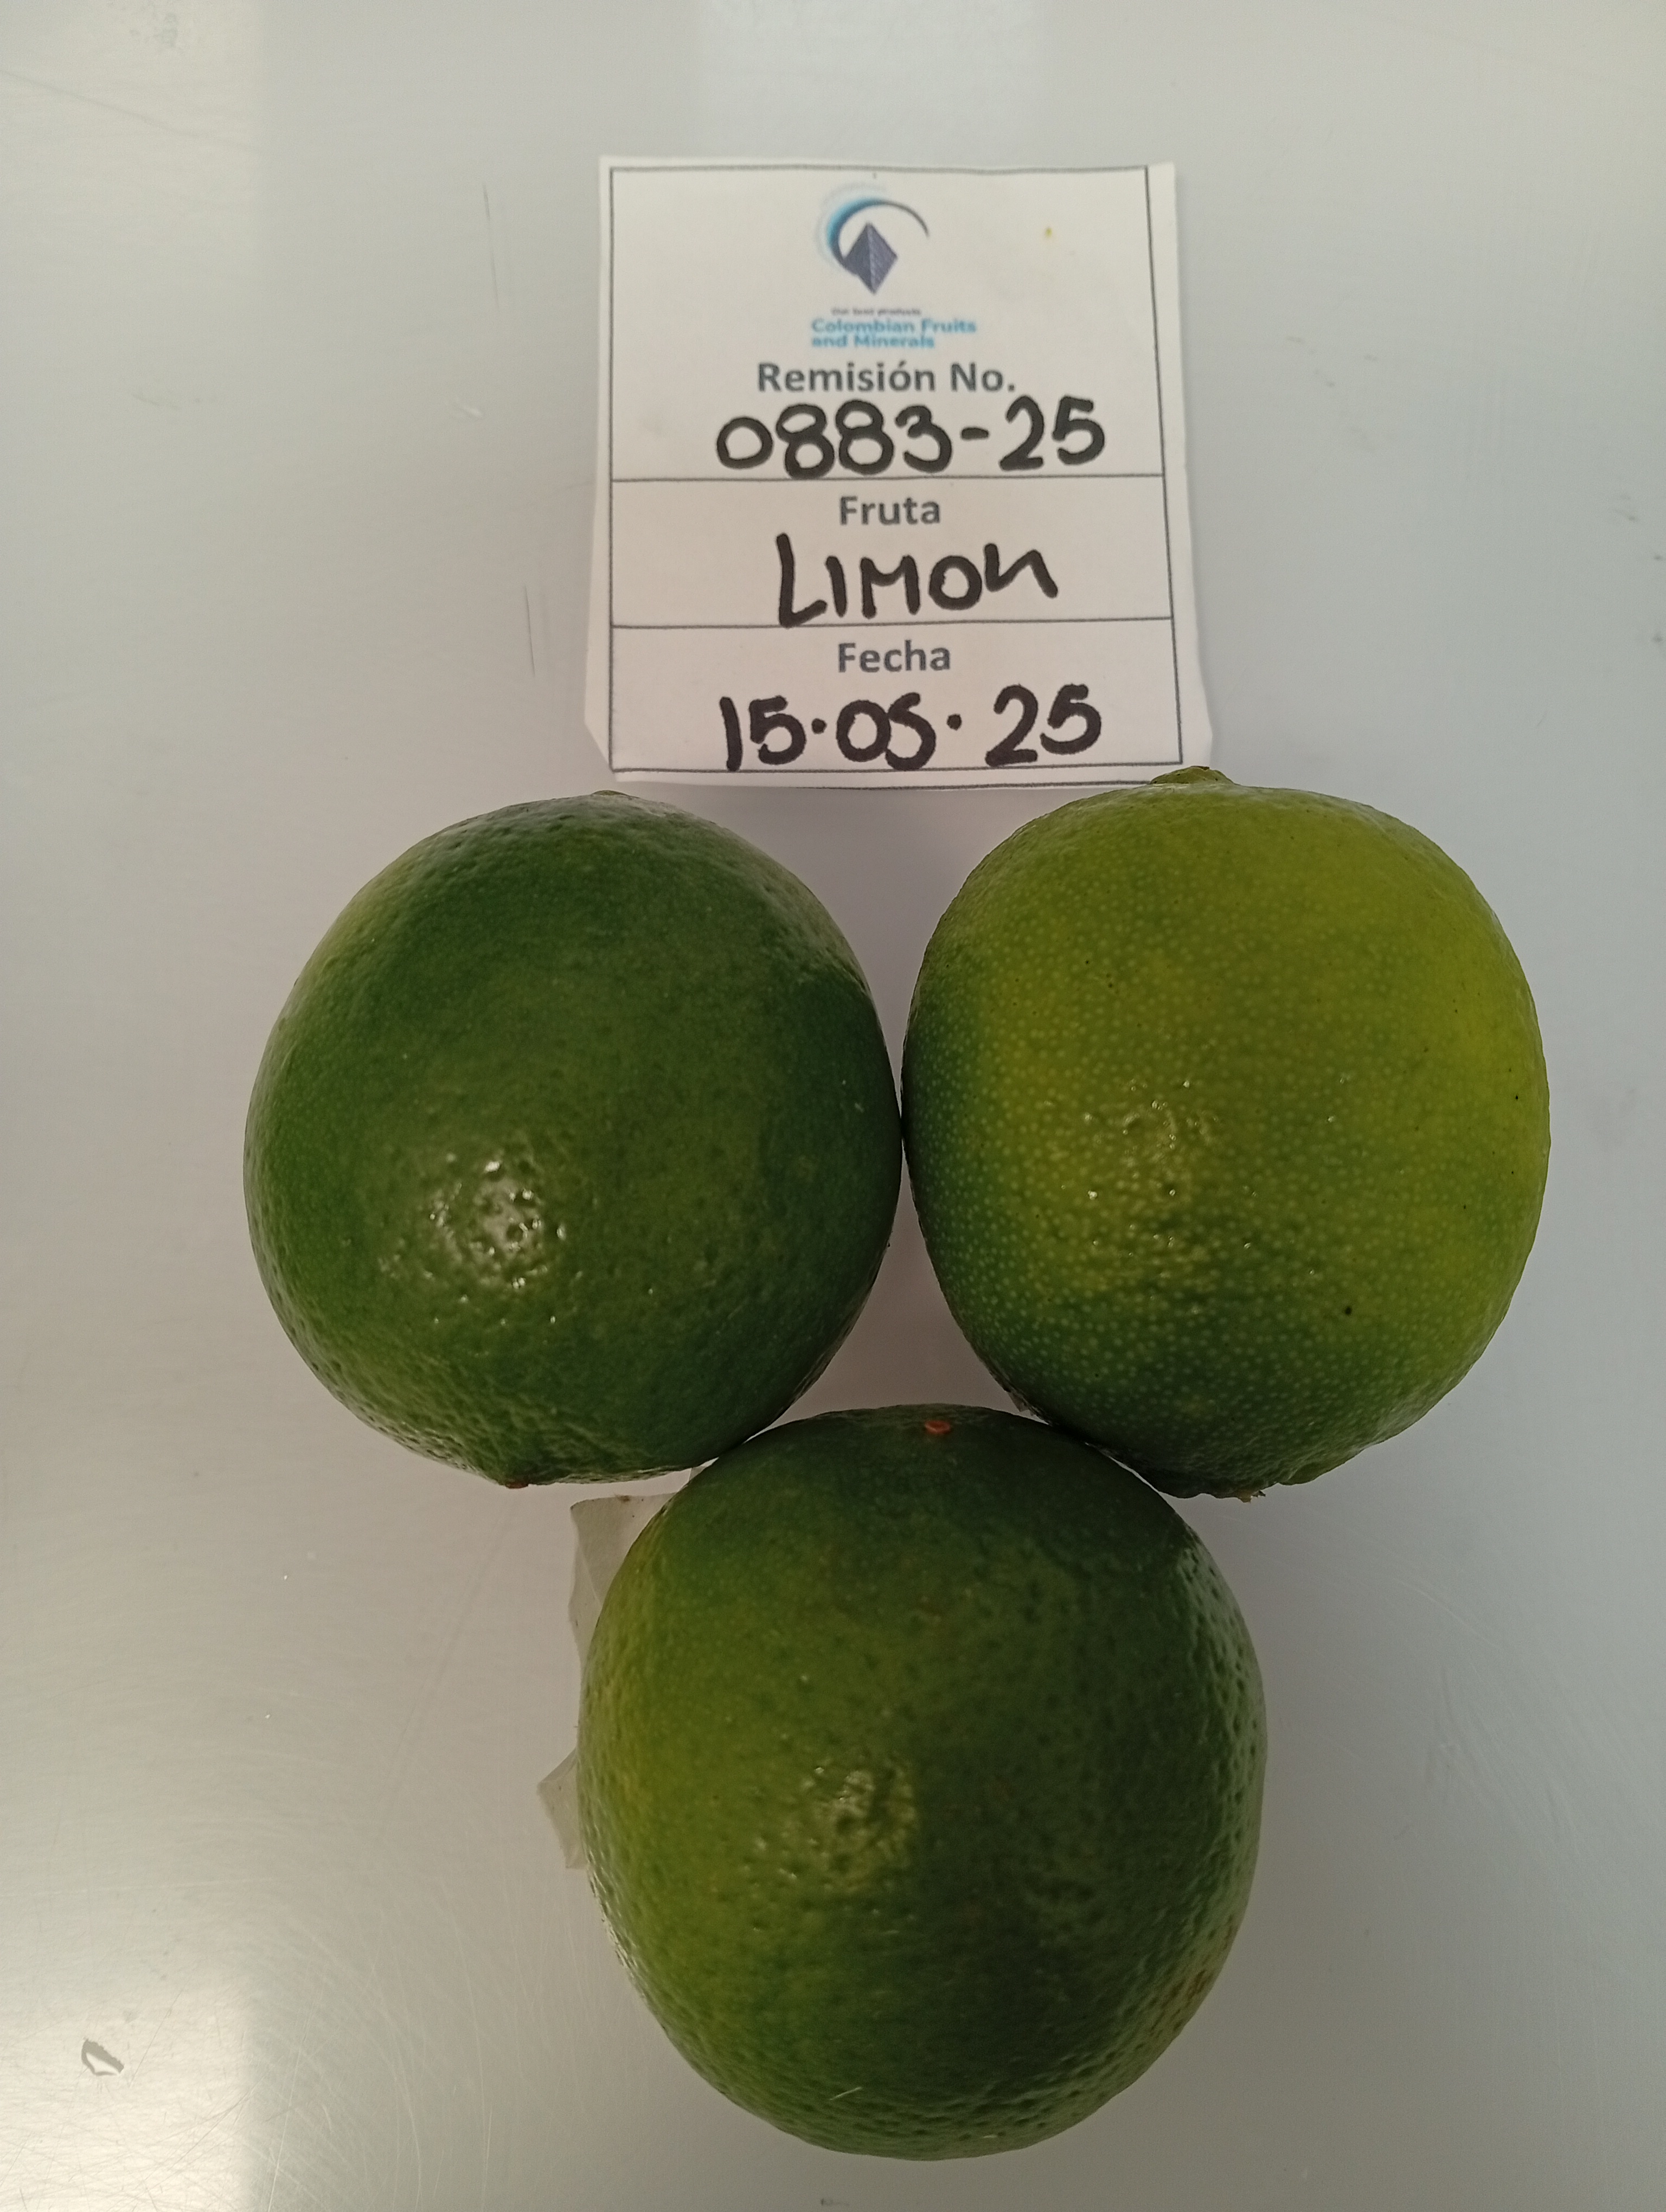 Our best products
Colombian Fruits
and Minerals
Remisión No.
0883-25
Fruta
LIMON
Fecha
15.05.25